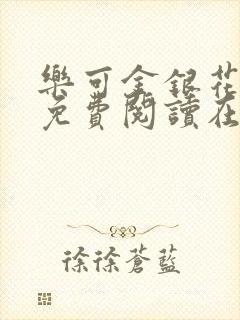 樂可金銀花
免費閱讀在
徐徐蒼藍